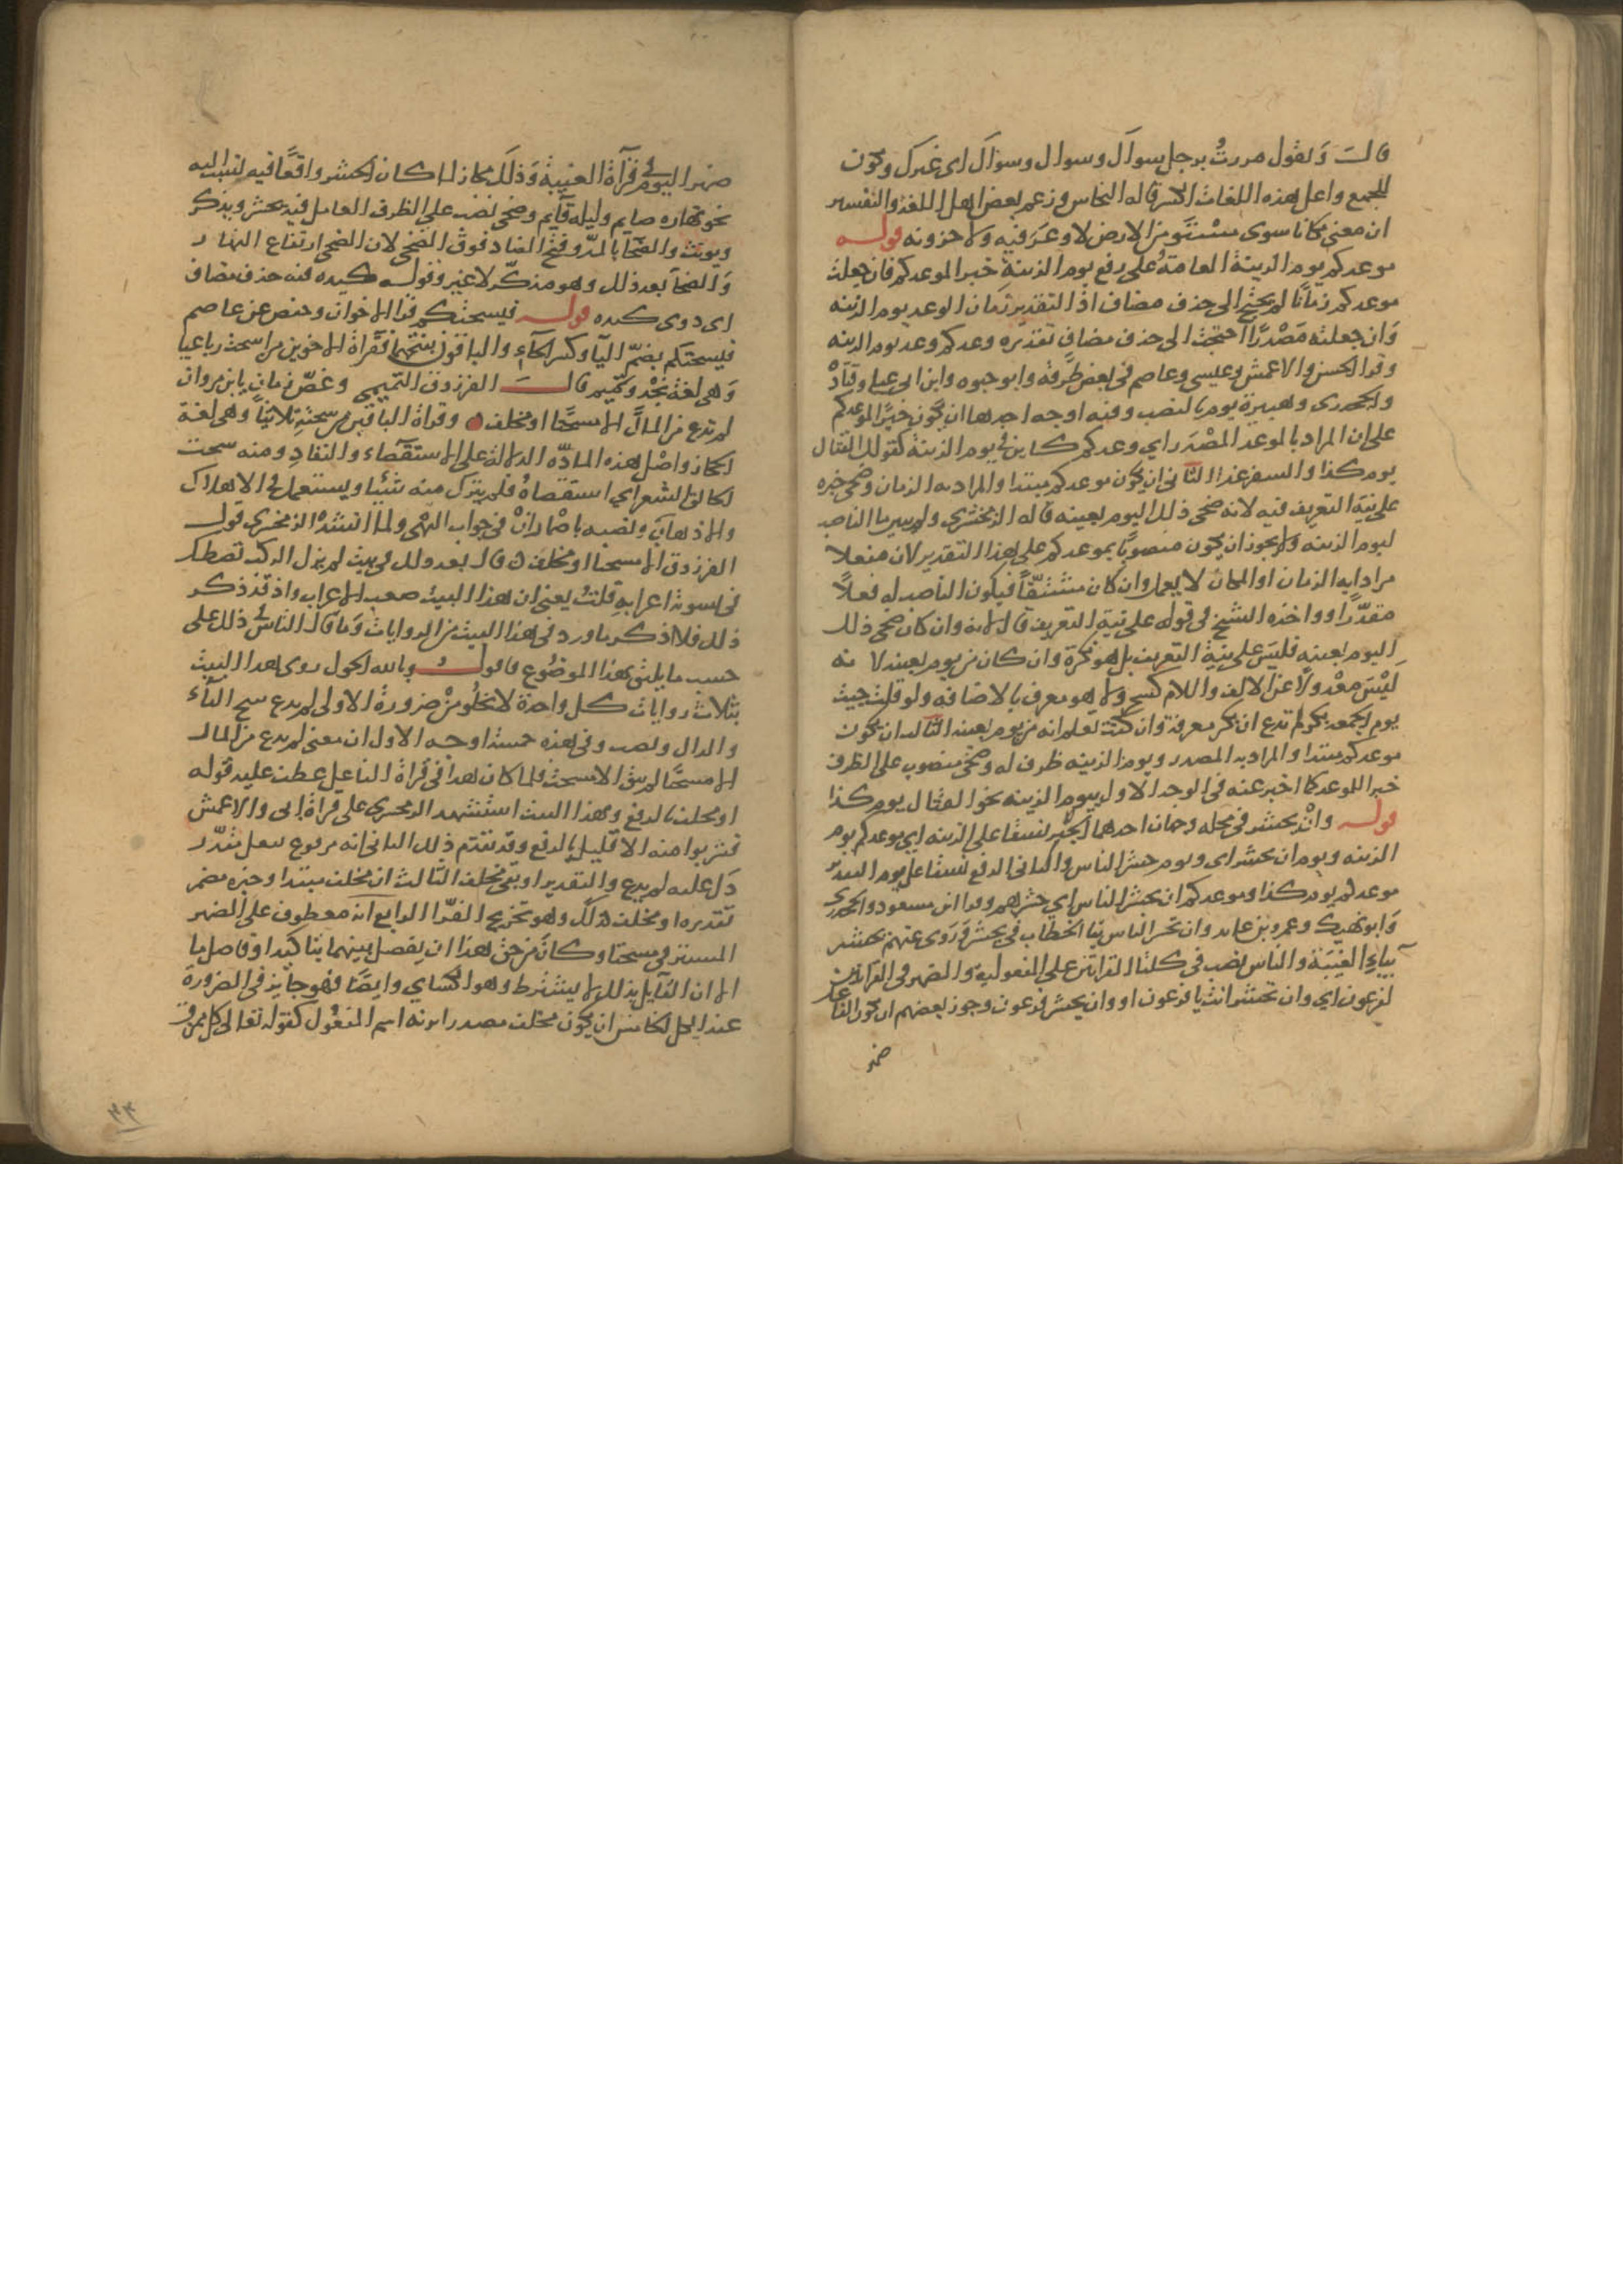 قالت وتقول مررت برجل سواك وسواك وسواك اى غيرك ويكون
للجميع واعلى هذه اللغات الكسر قاله النحاس وزعم بعض اهل اللغة والتفسير
ان معنى مكانا سوى مستو من الارض لا وعر فيه ولا حزونه قوله
موعدكم يوم الزينة العامة على رفع يوم الزينة خبرا لموعدكم فان جعلت
موعدكم زمانا لم يحتج الى حذف مضاف اذ التقدير زمان الوعد يوم الزينه
وان جعلته مصدرا احتجت الى حذف مضاف تقديره وعدكم وعد يوم الزينه
وقرا الحسن والاعمش وعيسى وعاصم فى بعض طرقه وابو حيوه وابن ابى عبلة وقتادة
والجحدرى وهبيرة يوم بالنصب وفيه اوجه احدها ان يكون خبرا لموعدكم
على ان المراد بالموعد المصدر اي وعدكم كاين في يوم الزينة كقولك القتال
يوم كذا والسفر غدا الثانى ان يكون موعدكم مبتدا والمراد به الزمان وضحى خبره
على نية التعريف فيه لانه ضحى ذلك اليوم بعينه قاله الزمخشري ولم يبين ما الناصب
ليوم الزينه ولا يجوز ان يكون منصوبا بموعدكم على هذا التقدير لان مفعلا
مرادا به الزمان او المكان لا يعمل وان كان مشتقا فيكون الناصب له فعلا
مقدرا وواخذه الشيخ فى قوله على نية التعريف قال لانه وان كان ضحى ذلك
اليوم بعينه فليس على نية التعريف بل هو نكرة وان كان من يوم بعينه لانه
ليس معدولا عن الالف واللام كسحر ولا هو معرف بالاضافه ولو قلت جيت
يوم الجمعه بكرا لم تدع ان بكر معرفة وان كنت تعلم انه من يوم بعينه الثالث ان يكون
موعدكم مبتدا والمراد به المصدر ويوم الزينه ظرف له وضحى منصوب على الظرف
خبرا للموعد كما اخبر عنه فى الوجه الاول بيوم الزينه نحو القتال يوم كذا
قوله وان يحشر فى محله وجهان احدهما الجر نسقا على الزينه اي موعدكم يوم
الزينه ويوم ان يحشر اى ويوم حشر الناس والثانى الرفع نسقا على يوم التقدير
موعدكم يوم كذا وموعدكم ان يحشر الناس اي حشرهم وقرا ابن مسعود والجحدري
وابو نهيك وعمرو بن فايد وان تحشر الناس بتا الخطاب فى تحشر وروى عنهم يحشر
بياء الغيبة والناس نصب فى كلتا القراتين على المفعولية والضمير فى القراتين
لفرعون اي وان تحشر انت يا فرعون او وان يحشر فرعون وجوز بعضهم ان يكون الفاعل
ضمير
ضمير اليوم في قرآة الغيبة وذلك مجاز لما كان الحشر واقعا فيه نسب اليه
نحو نهاره صايم وليله قايم وضحى نصب على الظرف العامل فيه يحشر ويذكر
ويونث والضحآ بالمد وفتح الضاد فوق الضحى لان الضحى ارتفاع النهار
والضحآ بعد ذلك وهو مذكر لا غير وقوله كيده فيه حذف مضاف
اى ذوى كيده قوله فيسحتكم قرا الاخوان وحفص عن عاصم
فيسحتكم بضم اليآ وكسر الحآء والباقون بفتحهما فقرآة الاخوين من اسحت رباعيا
وهى لغة نجد وتميم قالت الفرزدق التميمي وعض زمان يابن مروان
لم تدع من المال الا مسحتا او مجلف وقراة الباقين من سحته ثلاثيا وهى لغة
الحجاز واصل هذه الماده الدلالة على الاستقصاء والنفاد ومنه سحت
الحالق الشعر اي استقصاه فلم يترك منه شيئا ويستعمل فى الاهلاك
والاذهاب ونصبه باضمار ان فى جواب النهى ولما انشد الزمخشري قول
الفرزدق الا مسحتا او مجلف قال بعد ذلك فى بيت لم يزل الركب تصطك
فى تسوية اعرابه قلت يعنى ان هذا البيت صعب الاعراب واذ قد ذكر
ذلك فلا اذكر ما ورد فى هذا البيت من الروايات وما قال الناس فى ذلك على
حسب ما يليق بهذا الموضوع فاقول وبالله الحول روى هذا البيت
بثلاث روايات كل واحدة لا تخلو من ضرورة الاولى لم يدع بفتح اليآء
والدال ونصب وفى هذه خمسة اوجه الاول ان معنى لم يدع من المال
الا مسحتا لم يبق الا مسحت فلما كان هذا فى قوة الفاعل عطف عليه قوله
او مجلف بالرفع وبهذا البيت استشهد الزمخشرى على قراة ابى والاعمش
فشربوا منه الا قليل بالرفع وقد تقدم ذلك الثانى انه مرفوع بفعل مقدر
دل عليه لم يدع والتقدير او بقى مجلف الثالث ان مجلف مبتدا وخبره مضمر
تقديره او مجلف كذلك وهو تخريج الفرا الرابع انه معطوف على الضمير
المستتر فى مسحتا وكان من حق هذا ان يفصل بينهما بتاكيد او فاصل ما
الا ان القايل بذلك لا يشترط وهو الكساي وايضا فهو جايز فى الضرورة
عند الكل الخامس ان يكون مجلف مصدرا بزنه اسم المفعول كقوله تعالى كل ممزق
٣٤